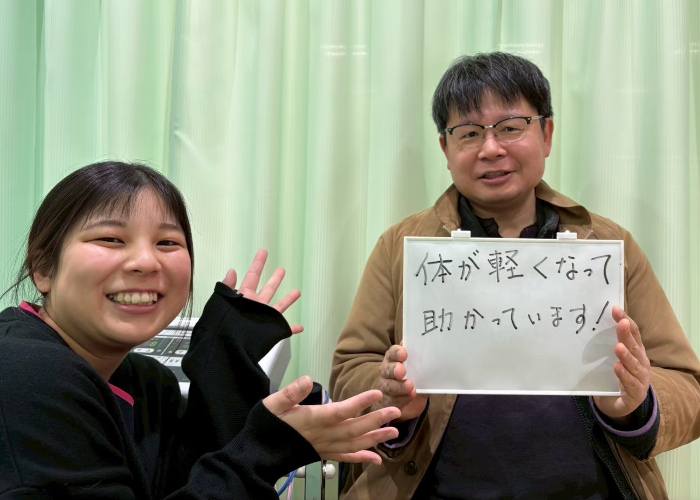 体が軽くなって
助かっています!